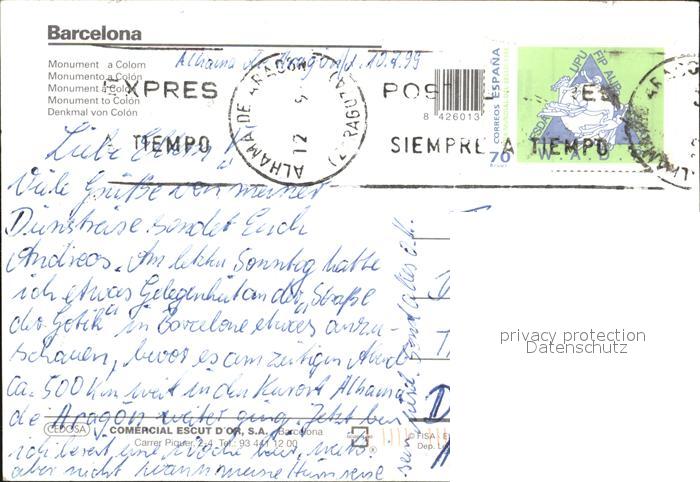 Barcelona
Monument a Colom
Monumento a Colón
Monument à Colón
Monument to Colón
Denkmal von Colón
Alhama de Aragón, d. 10.2.99
EXPRES
TIEMPO
ALHAMA DE ARAGON (ZARAGOZA)
12
POST EXPRES
SIEMPRE A TIEMPO
8 426013
CORREOS ESPAÑA
70
UPU FIP
WADP
Liebe Eltern!
Viele Grüße von meiner
Dienstreise sendet Euch
Andreas. Am letzten Sonntag hatte
ich etwas Gelegenheit an der "Straße
der Gotik" in Barcelona etwas anzu-
schauen, bevor es am zeitigen Abend
ca. 500 km weit in den Kurort Alhama
de Aragón weiter ging. Jetzt bin
CEDOSA
COMERCIAL ESCUT D'OR, S.A. - Barcelona
Carrer Piquer, 2-4 Tel.: 93 441 12 00
© FISA - E
Dep. L
ich bereit eine Woche hier, weiß
aber nicht wann meine Heimreise
sein wird.
privacy protection
Datenschutz